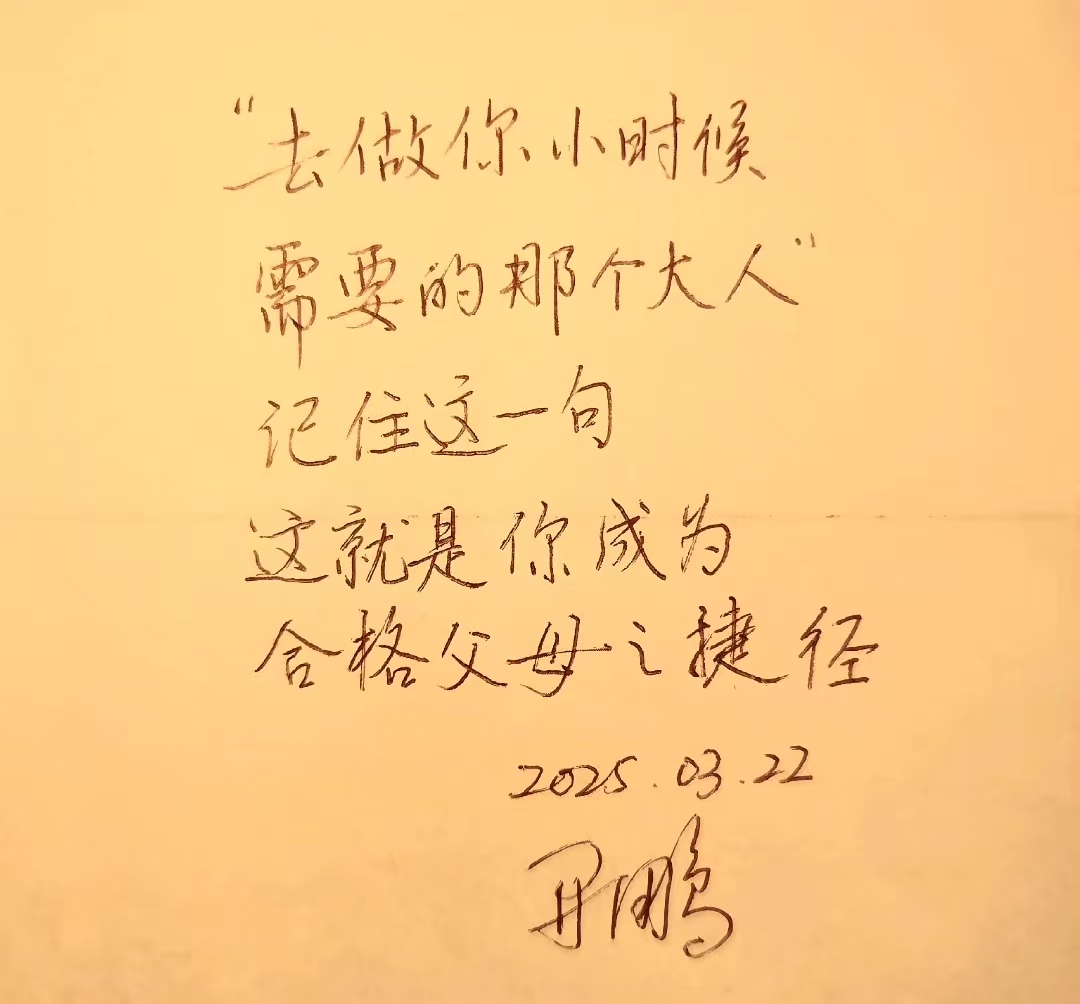 “去做你小时候
需要的那个大人”
记住这一句
这就是你成为
合格父母之捷径
2025.03.22